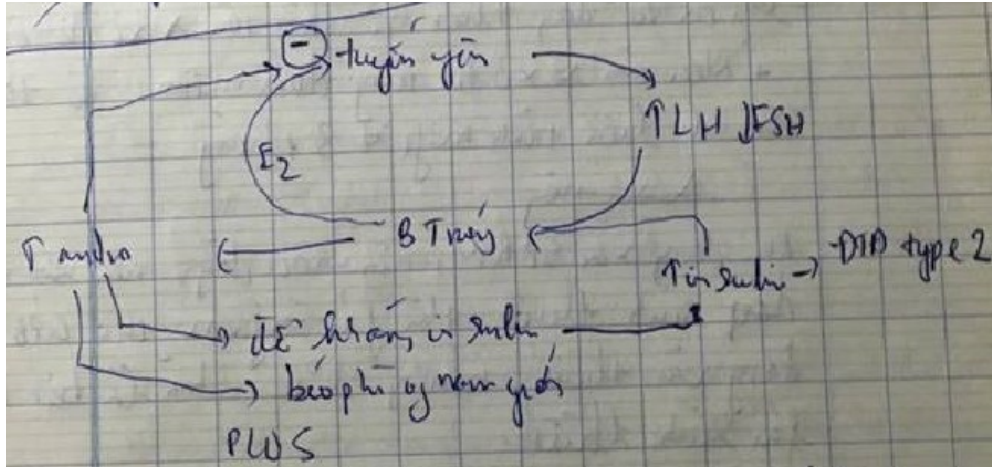 - tuyến yên
↑LH ↓FSH
E2
B Trứng
↑ andro
↑ insulin → ĐTĐ type 2
đề kháng insulin
béo phì nam giới
PCOS